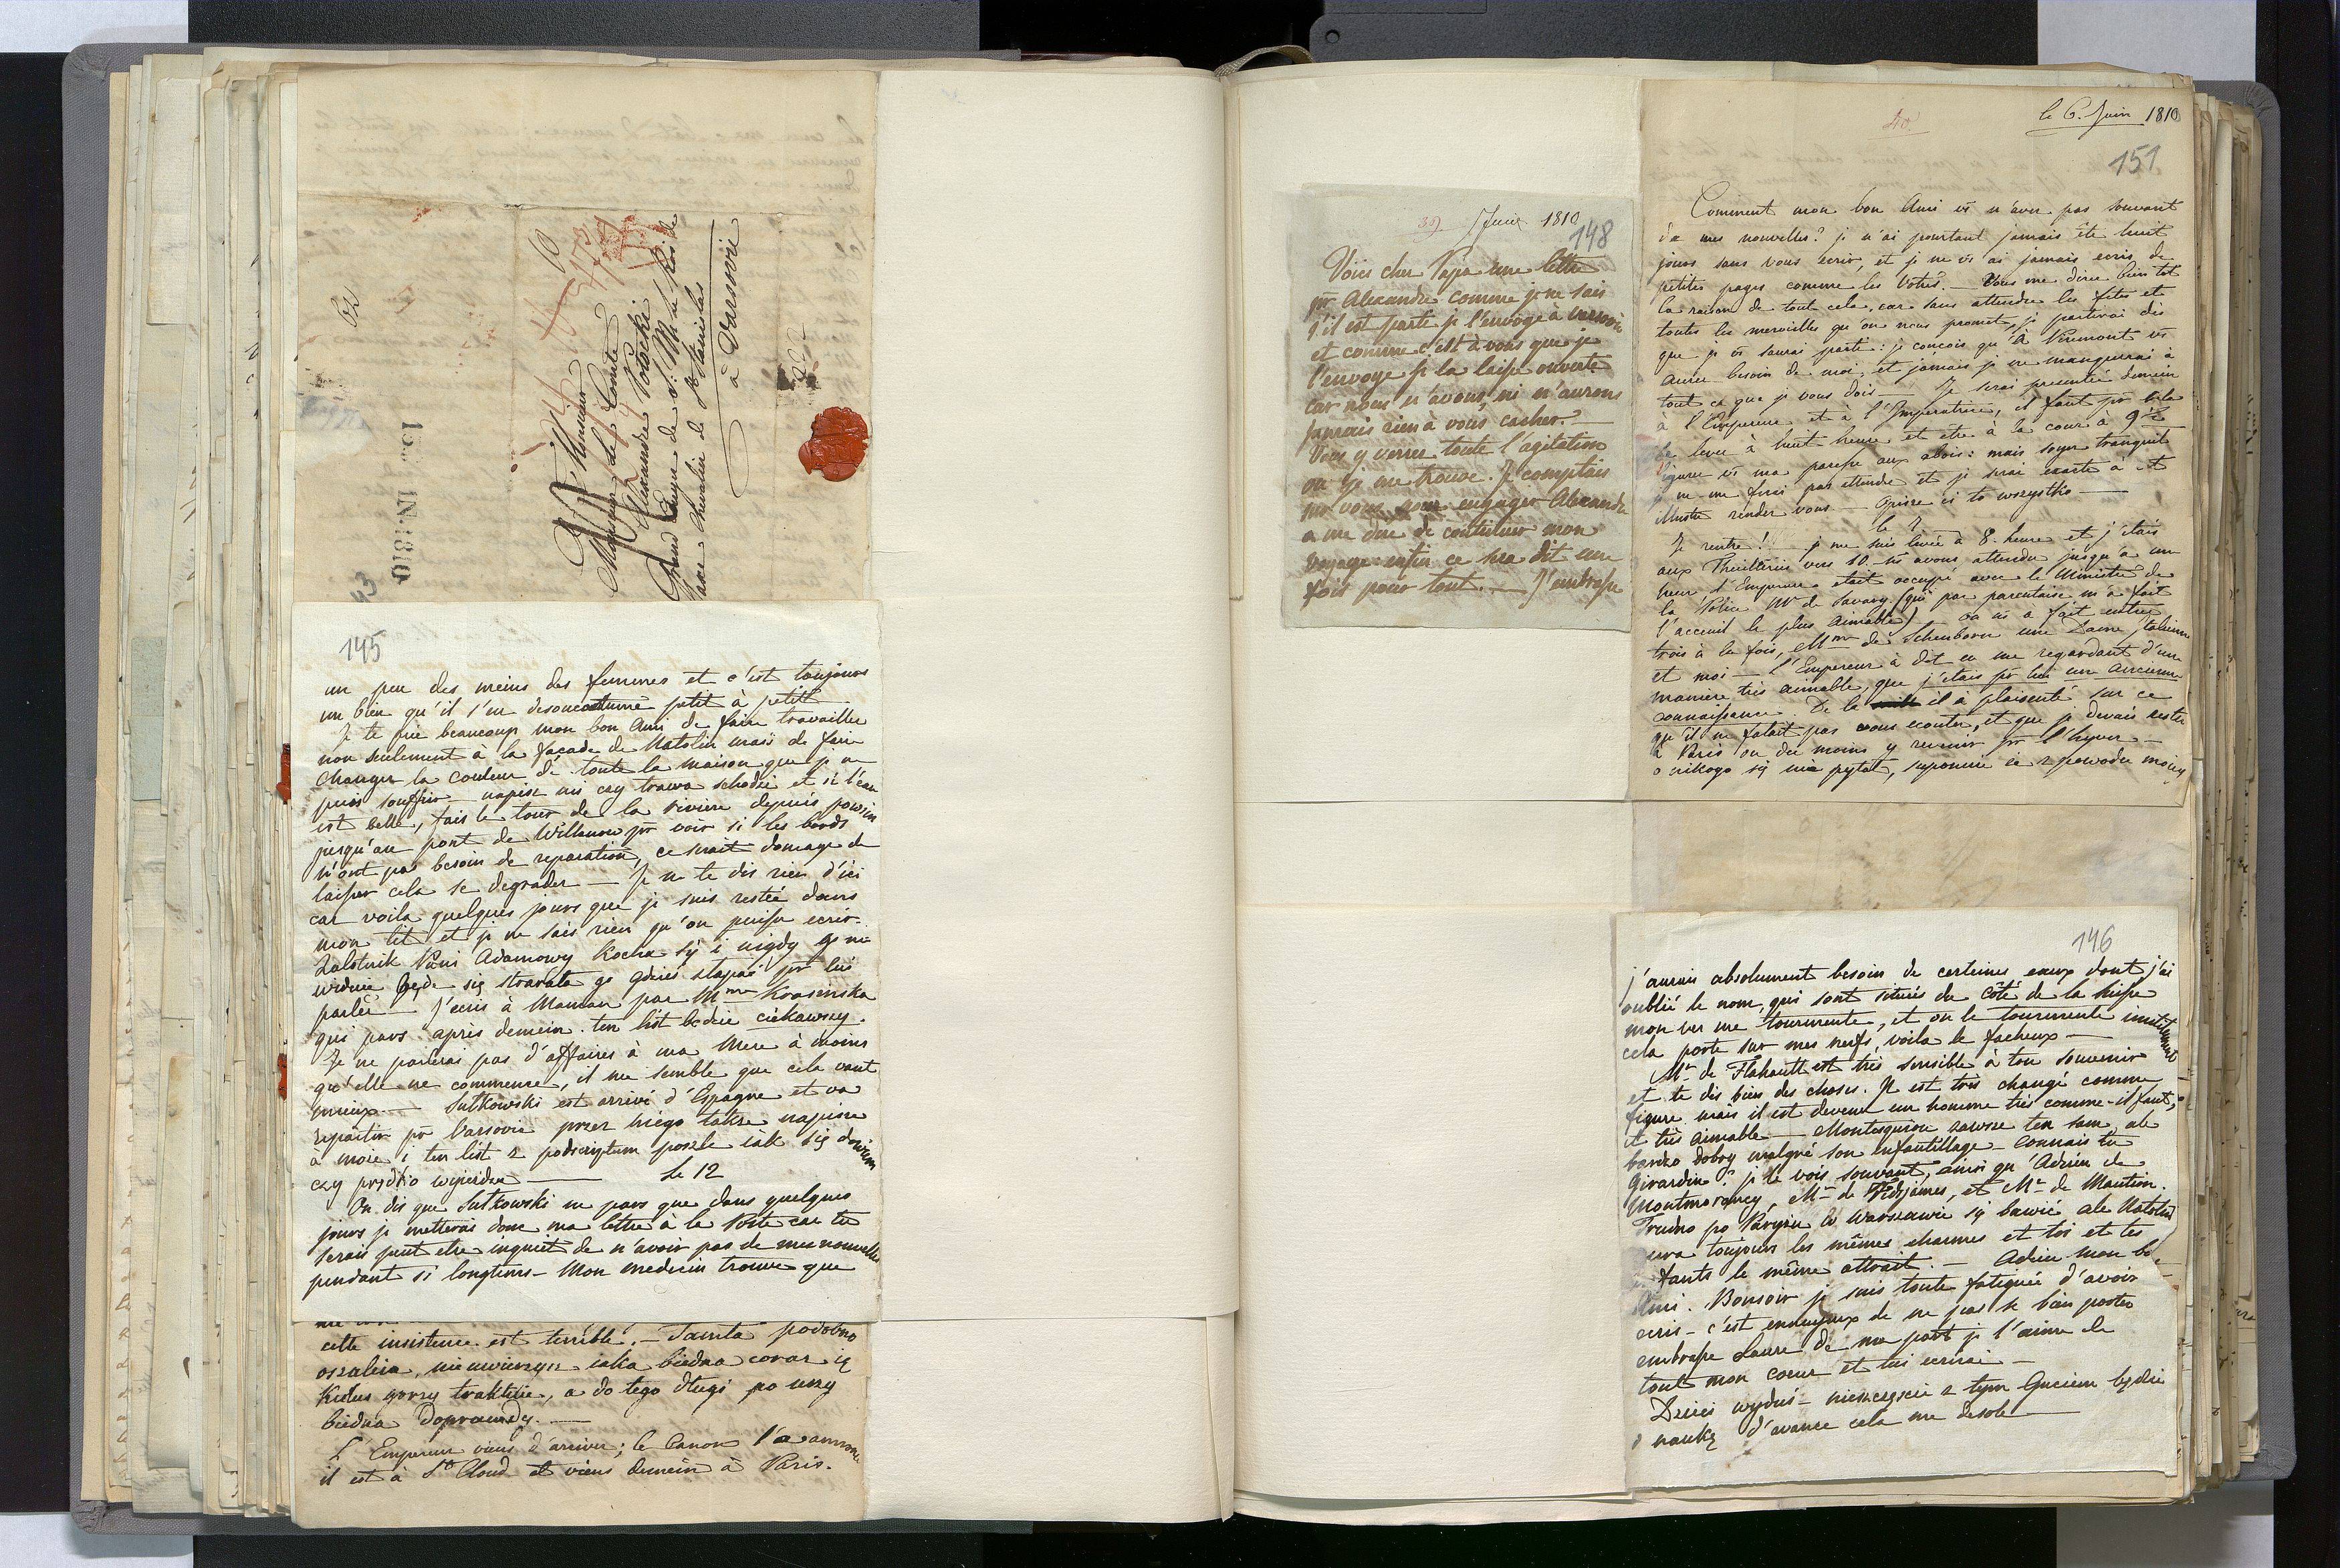 A Monsieur
Monsieur le Comte
Alexandre Potocki
Grand Ecuyer de S: M: le Roi de
Saxe Chevalier de St Stanislas
à Varsovie
15. IN. 1810.
145
un peu des meins des femmes et c'est toujours
un bien qu'il s'en desaccoutume petit à petit
Je te prie beaucoup mon bon Ami de faire travailler
non seulement à la façade de Natolin mais de faire
changer la couleur de toute la maison que je ne
puis souffrir napisz mi czy trawa schodzi et si l'eau
est belle, fais le tour de la riviere depuis powsin
jusqu'au pont de Willanow pr voir si les bords
n'ont pas besoin de reparation, ce serait domage de
laisser cela se degrader — Je ne te dis rien d'ici
car voila quelques jours que je suis restée dans
mon lit et je ne sais rien qu'on puisse ecrir.
Zalotnik Pani Adamowy kocha się i nigdy go nie
widzie będę się starała go gdzieś złapać pr lui
parler — j'ecris à Maman par Mme Krasinska
qui pars après demein. ten list bedzie ciekawszy.
Je ne parlerai pas d'affaires à ma Mere à moins
qu'elle ne commence, il me semble que cela vaut
mieux — Sutkowski est arrivé d'Espagne et va
repartir pr Varsovie przez niego także napisze
à moie i ten list z podscriptum poszle iak się dowiem
czy prędko wyjerdza — Le 12
On dis que Sutkowski ne pars que dans quelques
jours je metterai donc ma lettre à la Poste car tu
serais peut etre inquiet de n'avoir pas de mes nouvelles
pendant si longtems — Mon medecin trouve que
cette insistence est terrible. — Tamta podobno
oszaleia, nie uwierzysz iaka biedna coraz ią
gorzy traktuie, a do tego długi po uszy
biedna doprawdy. —
L'Empereur viens d'arriver; le Canon l'a annoncé
il est à St Cloud et viens demein à Paris.
39 Juin 1810
148
Voici cher Papa une lettre
pr Alexandre comme je ne sais
s'il est parti je l'envoye à varsovie
et comme c'est à vous que je
l'envoye je la laisse ouverte
car nous n'avons, ni n'aurons
jamais rien à vous cacher. —
Vous y verrez toute l'agitation
ou je me trouve. Je comptais
sur vous pour engager Alexandre
a me dire de continuer mon
voyage enfin ce sera dit une
fois pour tout. — J'embrasse
40
le 6. Juin 1810
151
Comment mon bon Ami vs n'avez pas souvent
de mes nouvelles? je n'ai pourtant jamais été huit
jours sans vous ecrir, et je ne vs ai jamais ecris de
petites pages comme les Votres. — Vous me direz bien tôt
la raison de tout cela, car sans attendre les fetes et
toutes les merveilles qu'on nous promet, je partirai dès
que je vs saurai parti: je conçois qu'à Piremont vs
aurez besoin de moi, et jamais je ne manquerai à
tout ce que je vous dois — Je serai presentée demein
à l'Empereur et à l'Imperatrice, il faut pr cela
se lever à huit heure et etre à la cour à 9½
figurez vs ma paresse aux abois: mais soyez tranquil
je ne me ferai pas attendre et je serai exacte à cet
illustre rendez vous — Opisze ci to wszystko —
le 7
Je rentre! je me suis levée à 8. heure et j'étais
aux Thuilleries vers 10. ns avons attendu jusqu'a un
heur l'Empereur etait occupé avec le Ministre de
la Police Mr de Savary (qui par parentaise m'a fait
l'acceuil le plus aimable) — on ns à fait entrer
trois à la fois, Mme de Schenborn une Dame italienne
et moi — l'Empereur à dit en me regardant d'une
maniere très aimable, que j'etais pr lui une ancienne
connaissance. De la il à plaisenté sur ce
qu'il ne falait pas vous ecouter, et que je devais rester
à Paris ou du moins y revenir pr l'hyver —
o nikogo się nie pytał, suponuie że z powodu moiey
146
j'aurais absolument besoin de certeines eaux dont j'ai
oublié le nom, qui sont situés du côté de la Suisse
mon ver me tourmente, et on le tourmente inutilement
cela porte sur mes nerfs, voila le facheux —
Mr de Flahault est très sensible à ton souvenir
et te dis bien des choses. Il est très changé comme
figure mais il est devenu un homme très comme-il faut,
et très aimable — Montesquiou zawsze ten sam, ale
bardzo dobry malgré son enfantillage — connais tu
Girardin? je le vois souvent, ainsi qu'Adrien de
Montmorency, Mr de Fidzjames, et Mr de Maution.
Trudno po Paryżu w Warszawie się bawić ale Natolin
aura toujours les mêmes charmes et toi et tes
enfants le même attrait. — Adieu mon bon
Ami. Bonsoir je suis toute fatiguée d'avoir
ecris — c'est ennuyeux de ne pas se bien porter
embrasse Laure de ma part je l'aime de
tout mon coeur et lui ecrirai —
Dzieci wyduś — nieszczęście z tym Guciem będzie
o naukę d'avance cela me desole —